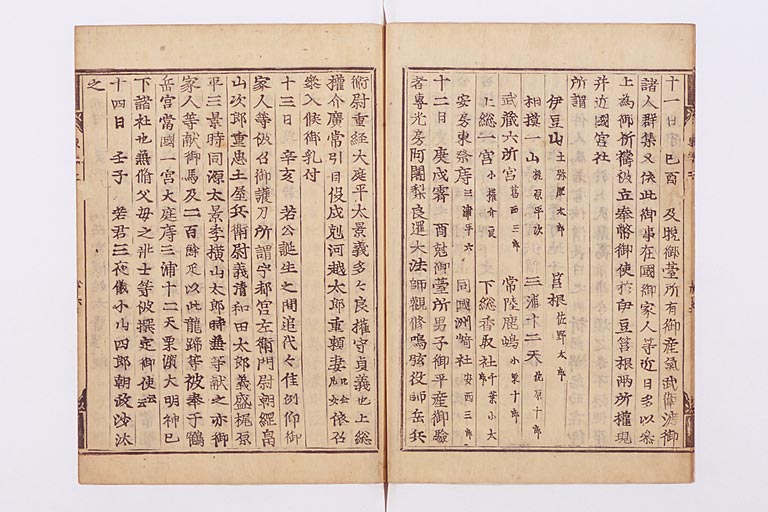 十一日 己酉 及晩御臺所有御産氣武衛渡御
諸人群集又依此御事在國御家人等近日多以参
上為御祈禱被立奉幣御使於伊豆筥根兩所權現
并近國宮社
所謂
伊豆山 土肥弥太郎 筥根 佐野太郎
相摸一山 梶原平次 三浦十二天 佐原十郎
武藏六所宮 葛西三郎 常陸鹿嶋 小栗十郎
上総一宮 小權介良 下総香取社 千葉小太郎
安房東条庤 三浦平六 同國洲崎社 安西三郎
十二日 庚戌 霽 酉尅御臺所男子御平産御驗
者專光房阿闍梨良暹大法師觀修鳴弦役師岳兵
衛尉重経大庭平太景義多々良權守貞義也上総
權介廣常引目役戌尅河越太郎重頼妻比企尼女依召
参入候御乳付
十三日 辛亥 若公誕生之間追代々佳例仰御
家人等被召御護刀所謂宇都宮左衛門尉朝經畠
山次郎重忠土屋兵衛尉義清和田太郎義盛梶原
平三景時同源太景季横山太郎時兼等献之亦御
家人等献御馬及二百餘疋以此龍蹄等被奉于鶴
岳宮當國一宮大庭庤三浦十二天栗濱大明神已
下諸社也兼備父母之壮士等被撰定御使云々
十四日 壬子 若君三夜儀小山四郎朝政沙汰
之